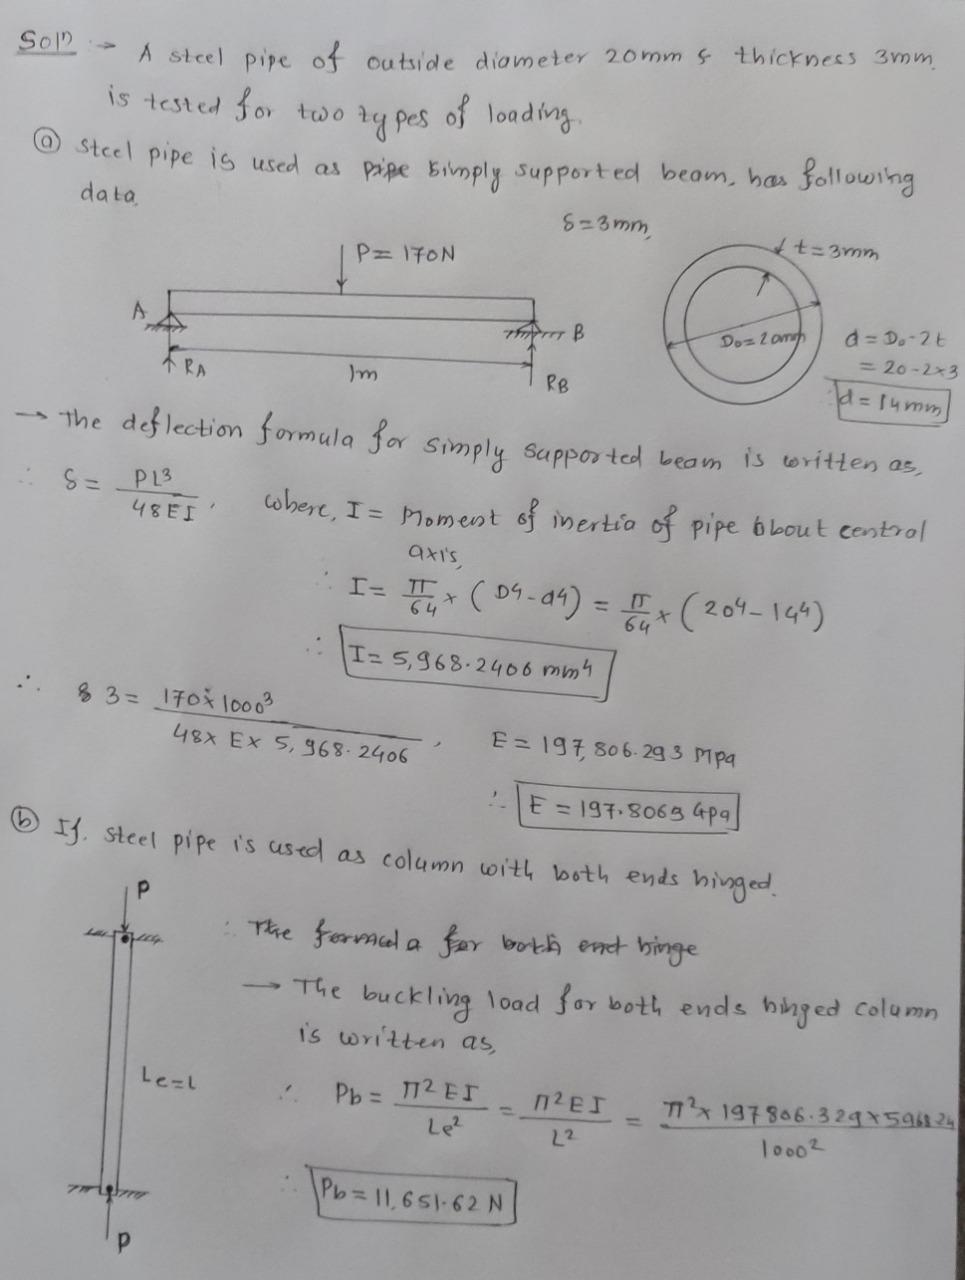 Soln :→ A steel pipe of outside diameter 20mm & thickness 3mm.
is tested for two types of loading.
ⓐ Steel pipe is used as pipe simply supported beam, has following
data.
δ=3mm,
P= 170N
t=3mm
A
B
D₀=20mm
d = D₀-2t
= 20-2×3
d=14mm
RA
1m
RB
→ The deflection formula for simply supported beam is written as,
∴ δ = PL³/48EI, where, I = Moment of inertia of pipe about central
axis,
∴ I= π/64 × (D4-d4) = π/64 × (20⁴-14⁴)
∴ I= 5,968.2406 mm⁴
∴ 3= 170×1000³/48×E×5,968.2406, E= 197,806.293 Mpa
∴ E = 197.8063 Gpa
ⓑ If. steel pipe is used as column with both ends hinged.
P
∴ The formula for both end hinge
→ The buckling load for both ends hinged column
is written as,
Le=L
∴ Pb = π²EI/Le² = π²EI/L² = π²×197806.329×5968.24/1000²
∴ Pb = 11,651.62 N
P